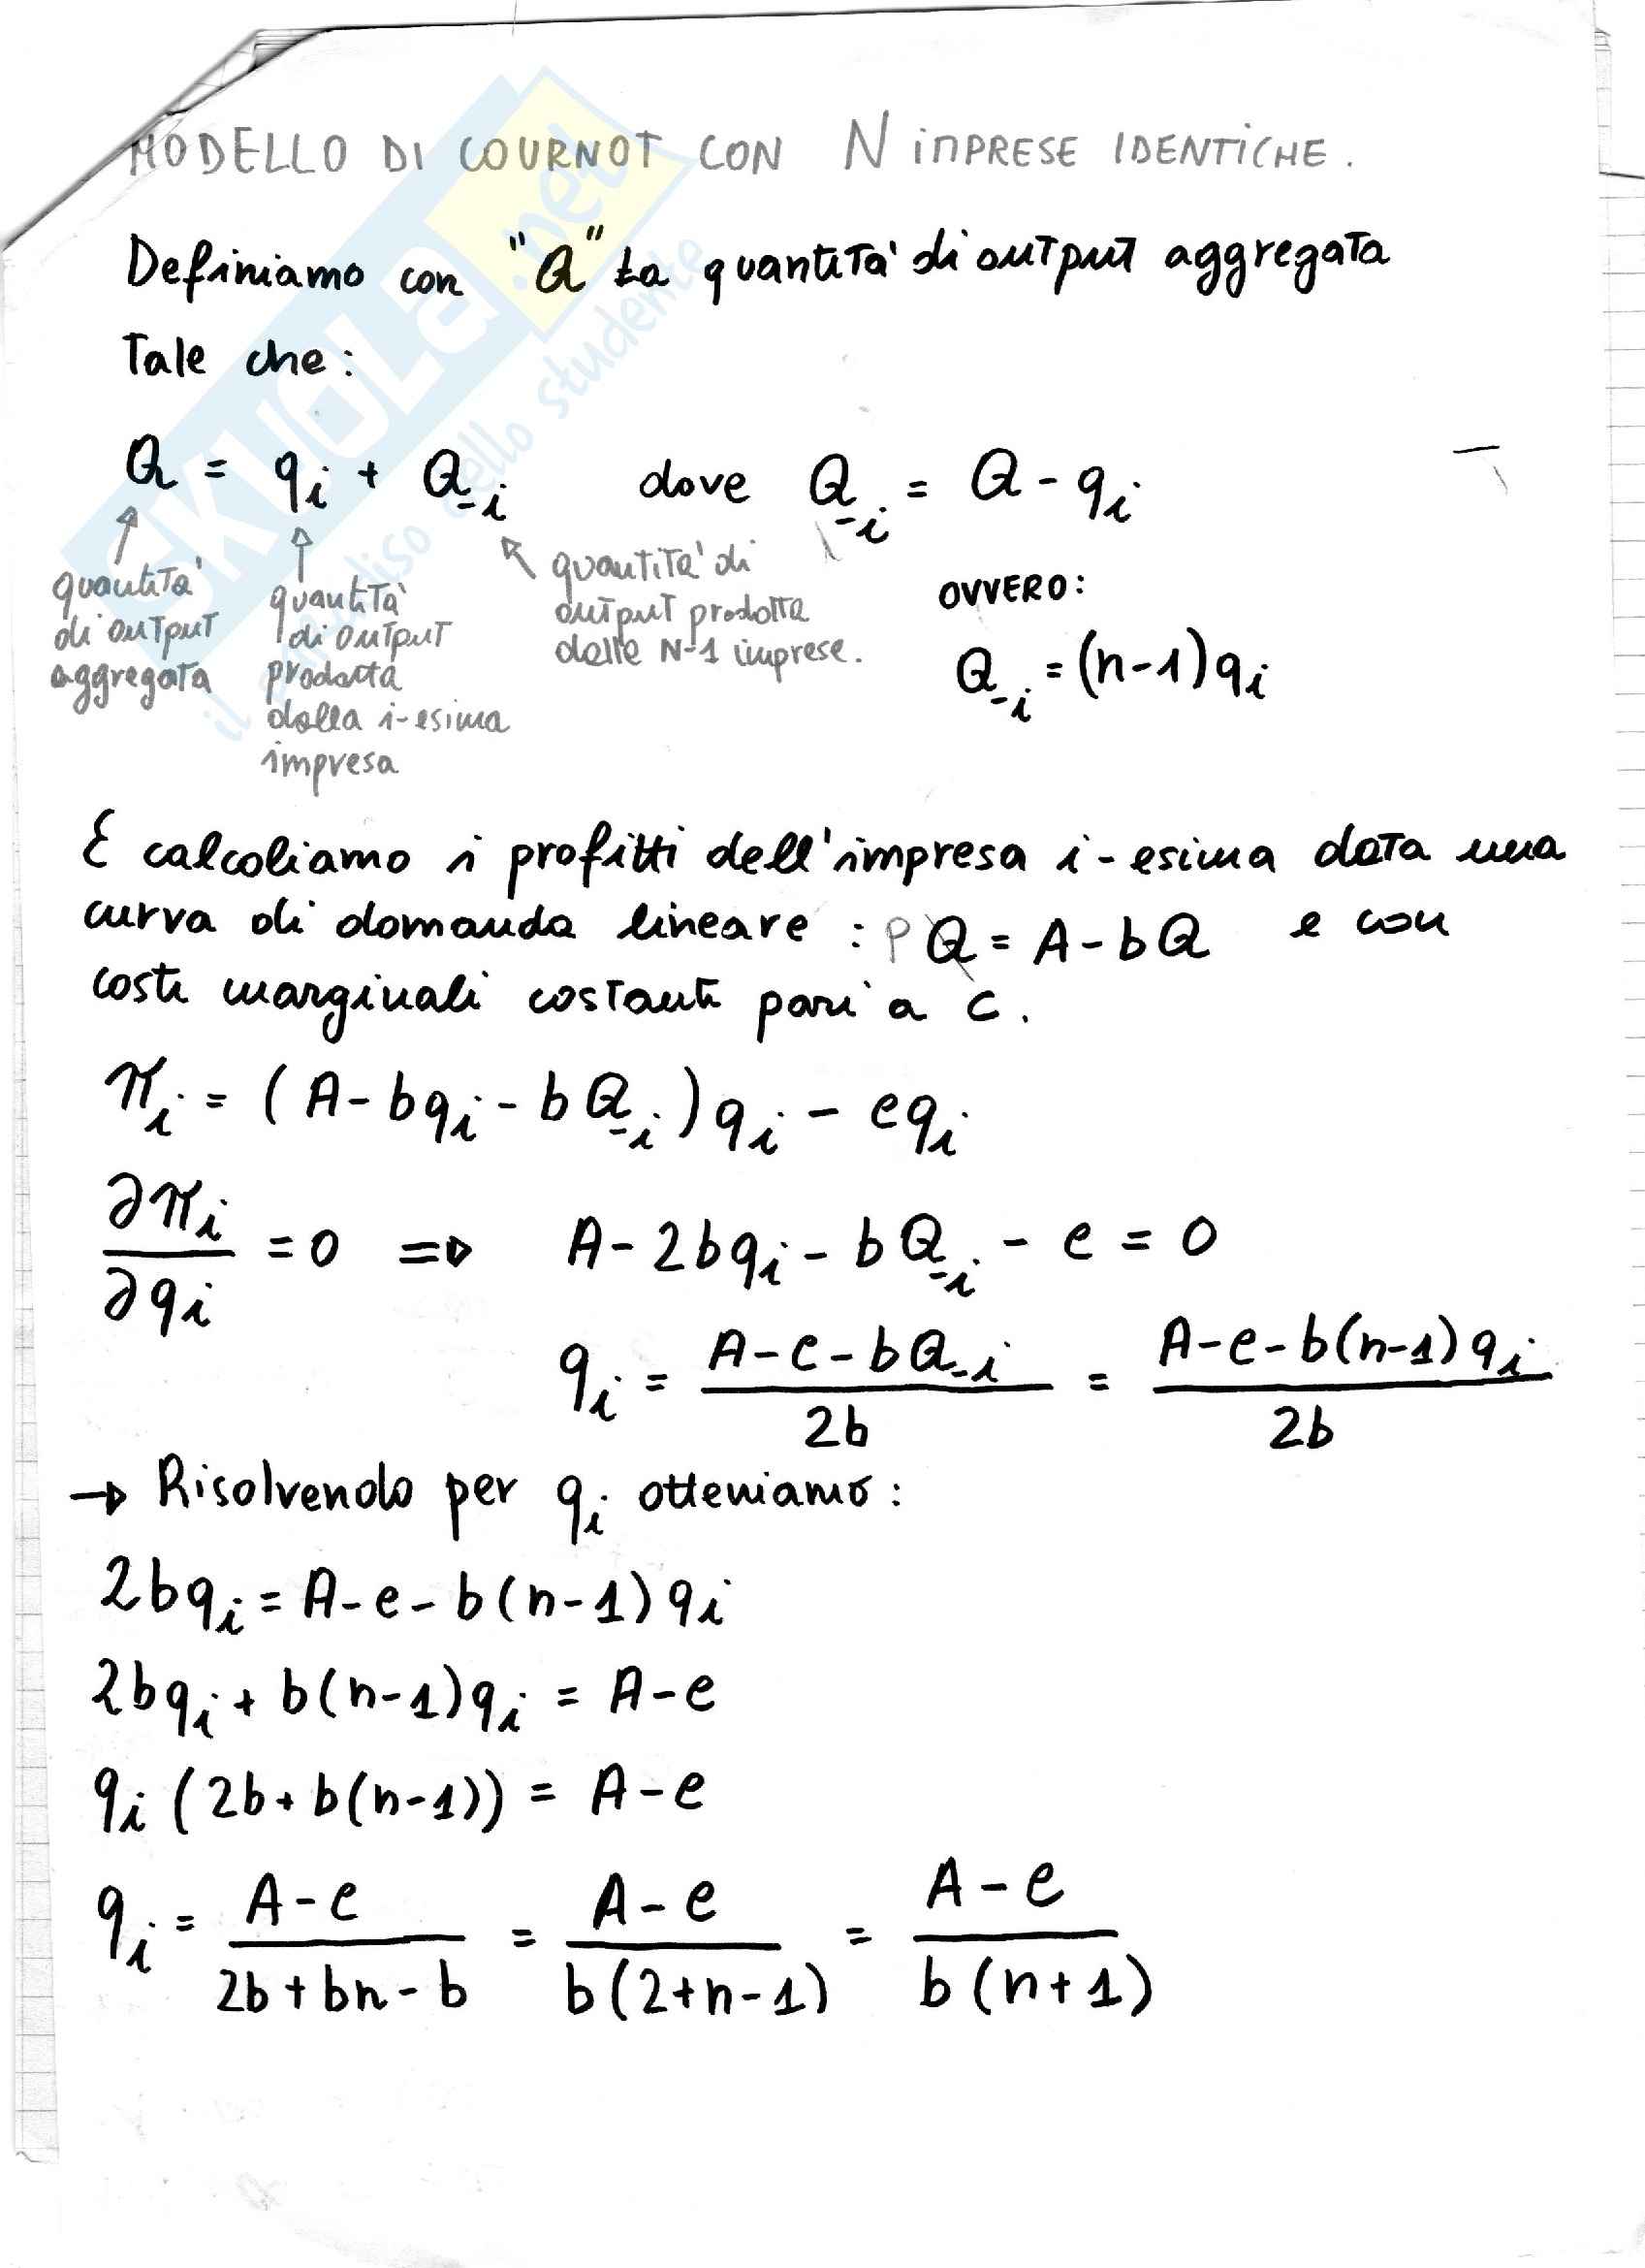 MODELLO DI COURNOT CON N IMPRESE IDENTICHE.
Definiamo con "Q" La quantità di output aggregata
Tale che:
Q = qi + Q-i dove Q-i = Q - qi
quantità di output aggregata
quantità di output prodotta dalla i-esima impresa
quantità di output prodotta dalle N-1 imprese.
OVVERO:
Q-i = (n-1)qi
E calcoliamo i profitti dell'impresa i-esima data una
curva di domanda lineare : P Q = A - bQ e con
costi marginali costanti pari a c.
πi = (A - bqi - bQ-i)qi - cqi
∂πi/∂qi = 0 => A - 2bqi - bQ-i - c = 0
qi = (A - c - bQ-i)/2b = (A - c - b(n-1)qi)/2b
→ Risolvendo per qi otteniamo:
2bqi = A - c - b(n-1)qi
2bqi + b(n-1)qi = A - c
qi (2b + b(n-1)) = A - c
qi = (A - c)/(2b + bn - b) = (A - c)/(b(2+n-1)) = (A - c)/(b(n+1))
SKUOLA.net
il paradiso dello studente